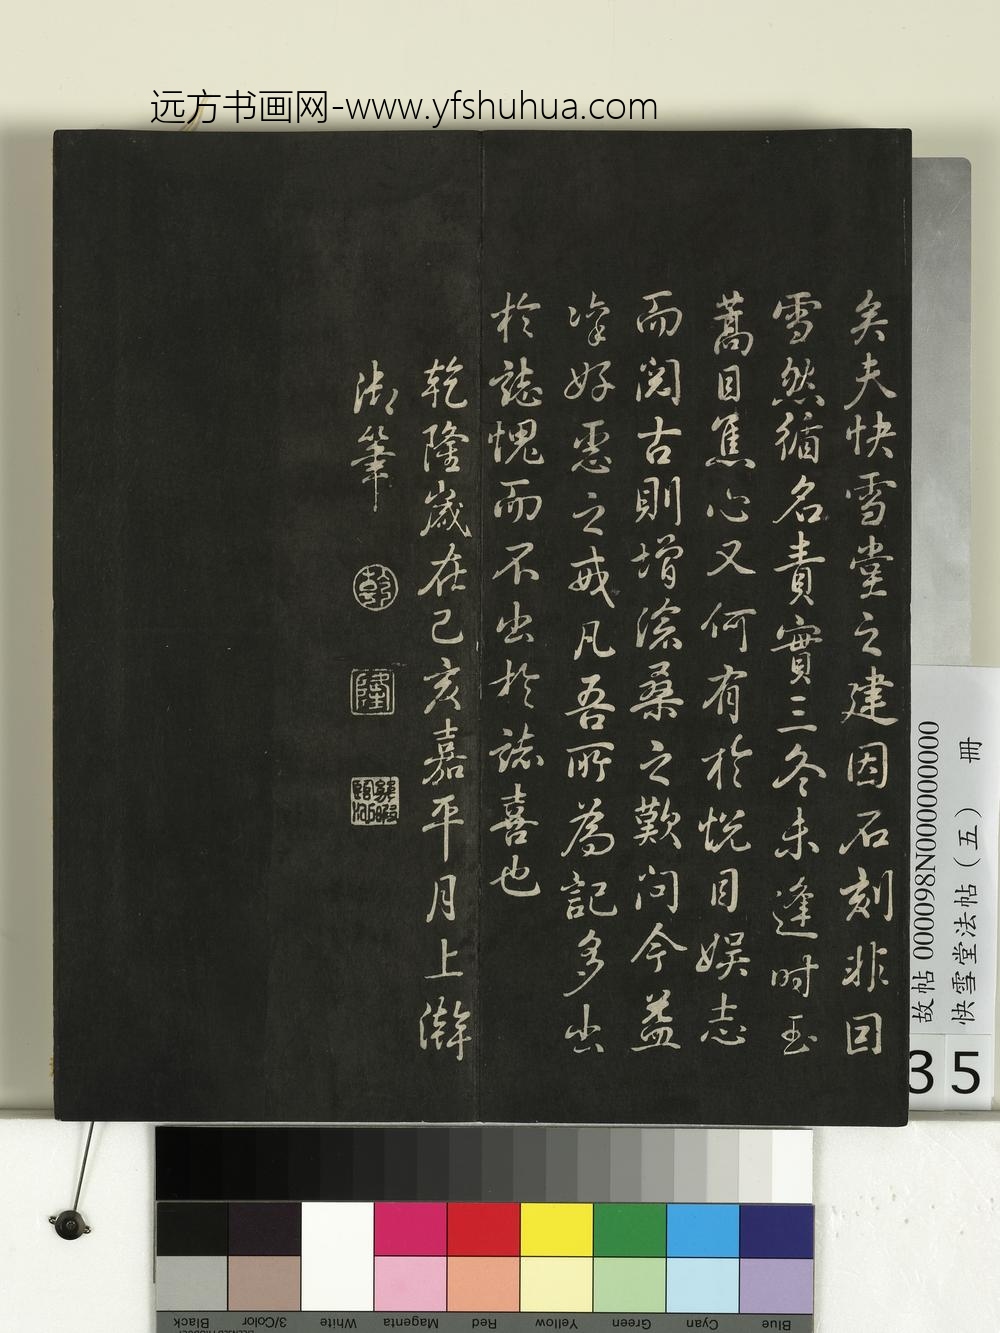 远方书画网-www.yfshuhua.com
矣夫快雪堂之建因石刻非因
雪然循名責實三冬未逢时玉
蒿目焦心又何有於悦目娱志
而阅古則增滄桑之歎问今益
凛好恶之戒凡吾所為記多出
於誌愧而不出於誌喜也
乾隆嵗在己亥嘉平月上澣
御筆
乾
隆
故帖 000098N000000000
快雪堂法帖（五） 冊
35
Black
3/Color
White
Magenta
Red
Yellow
Green
Cyan
Blue